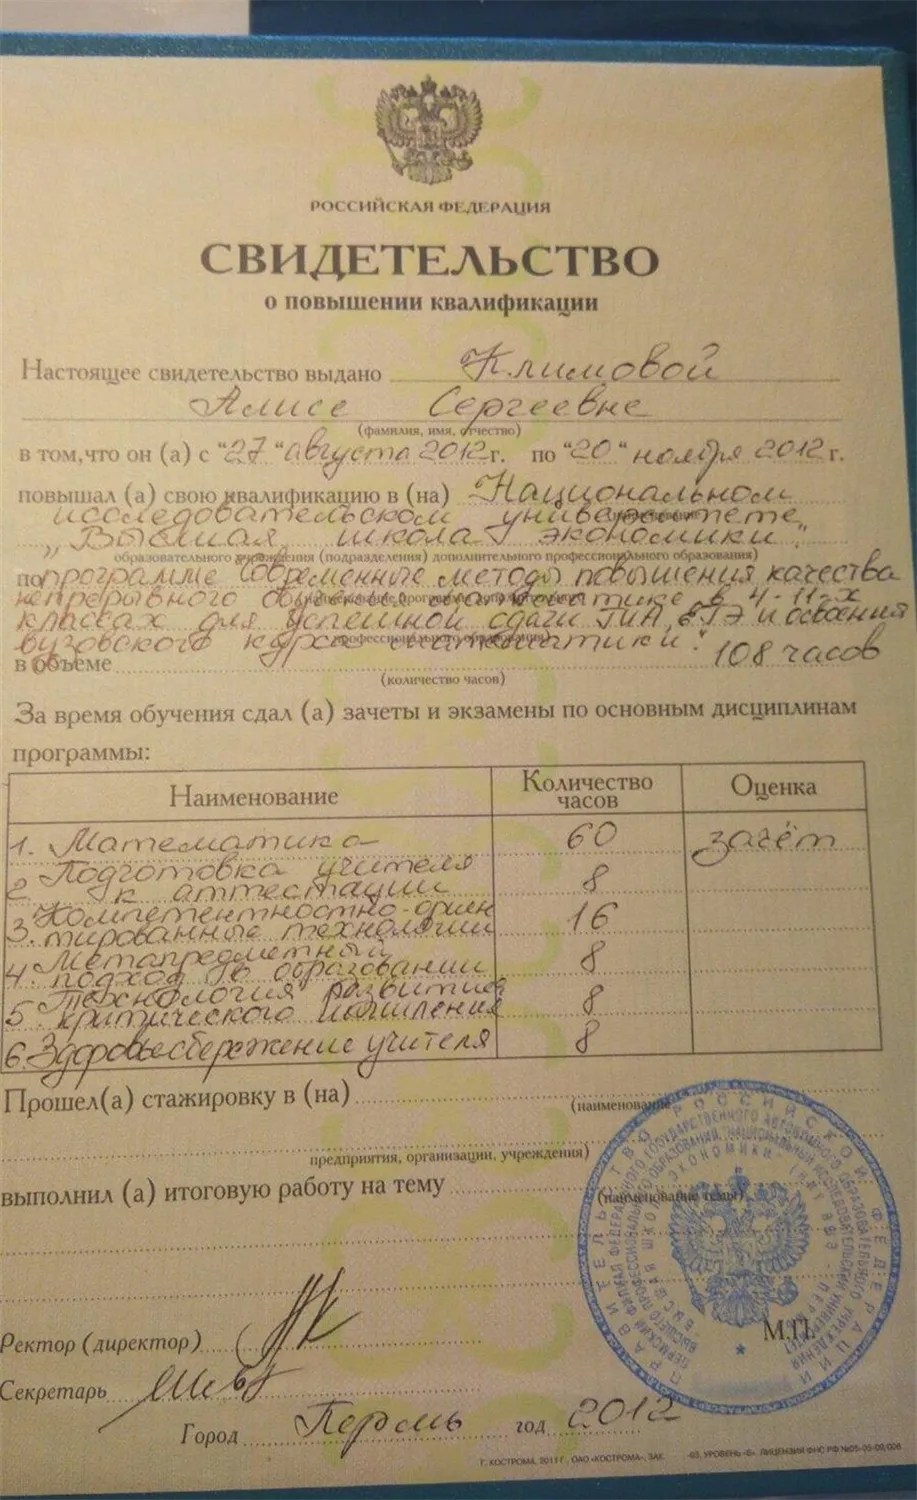 РОССИЙСКАЯ ФЕДЕРАЦИЯ
СВИДЕТЕЛЬСТВО
о повышении квалификации
Настоящее свидетельство выдано Климовой
Алисе Сергеевне
(фамилия, имя, отчество)
в том,что он (а) с "27" августа 2012 г. по "20" ноября 2012 г.
повышал (а) свою квалификацию в (на) Национальном
исследовательском университете
„Высшая школа экономики"
образовательного учреждения (подразделения) дополнительного профессионального образования)
по программе Современные методы повышения качества
непрерывного обучения математике в 4-11-х
классах для успешной сдачи ГИА, ЕГЭ и освоения
вузовского курса математики".
в объеме 108 часов
(количество часов)
За время обучения сдал (а) зачеты и экзамены по основным дисциплинам
программы:
Наименование Количество часов Оценка
1. Математика 60 зачёт
2. Подготовка учителя к аттестации 8
3. Компетентностно-ориентированные технологии 16
4. Метапредметный подход в образовании 8
5. Технология развития критического мышления 8
6. Здоровьесбережение учителя 8
Прошел(а) стажировку в (на)
(наименование
предприятия, организации, учреждения)
выполнил (а) итоговую работу на тему
(наименование темы)
Ректор (директор)
М.П.
Секретарь
Город Пермь год 2012
Г. КОСТРОМА, 2011 Г., ОАО «КОСТРОМА», ЗАК. УРОВЕНЬ «Б». ЛИЦЕНЗИЯ ФНС РФ